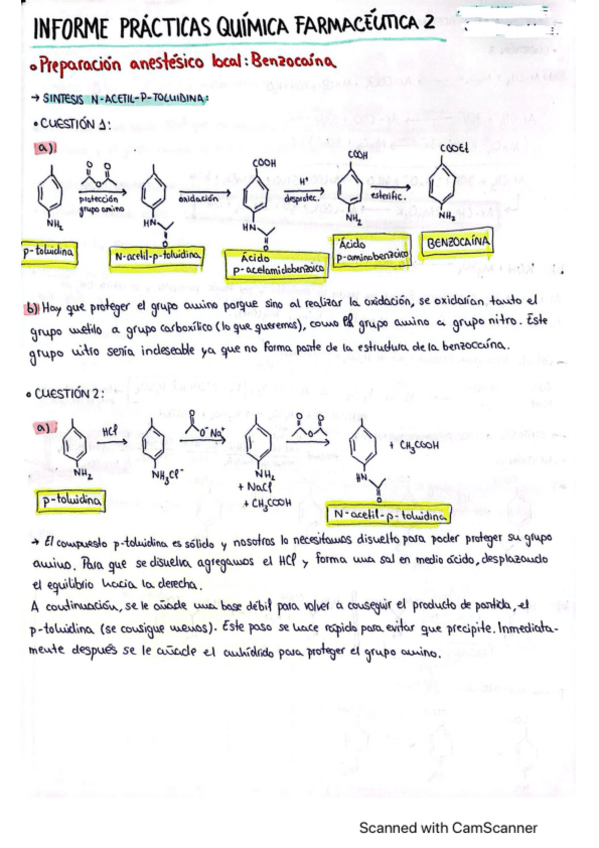 INFORME PRÁCTICAS QUÍMICA FARMACÉUTICA 2
• Preparación anestésico local: Benzocaína
→ SINTESIS N-ACETIL-P-TOLUIDINA:
• CUESTIÓN 1:
a)
COOH COOH COOEt
O O O
protección grupo amino
oxidación
H⁺
desprotec.
esterific.
NH₂ HN HN NH₂ NH₂
O O
p-toluidina
N-acetil-p-toluidina
Ácido p-acetamidobenzoico
Ácido p-aminobenzoico
BENZOCAÍNA
b) Hay que proteger el grupo amino porque sino al realizar la oxidación, se oxidarían tanto el
grupo metilo a grupo carboxílico (lo que queremos), como el grupo amino a grupo nitro. Este
grupo nitro sería indeseable ya que no forma parte de la estructura de la benzocaína.
• CUESTIÓN 2:
a)
HCl
O O⁻Na⁺
O O O
+ CH₃COOH
NH₂ NH₃Cl⁻ NH₂ HN
+ NaCl
+ CH₃COOH
O
p-toluidina
N-acetil-p-toluidina
→ El compuesto p-toluidina es sólido y nosotros lo necesitamos disuelto para poder proteger su grupo
amino. Para que se disuelva agregamos el HCl y forma una sal en medio ácido, desplazando
el equilibrio hacia la derecha.
A continuación, se le añade una base débil para volver a conseguir el producto de partida, el
p-toluidina (se consigue menos). Este paso se hace rápido para evitar que precipite. Inmediata-
mente después se le añade el anhídrido para proteger el grupo amino.
Scanned with CamScanner